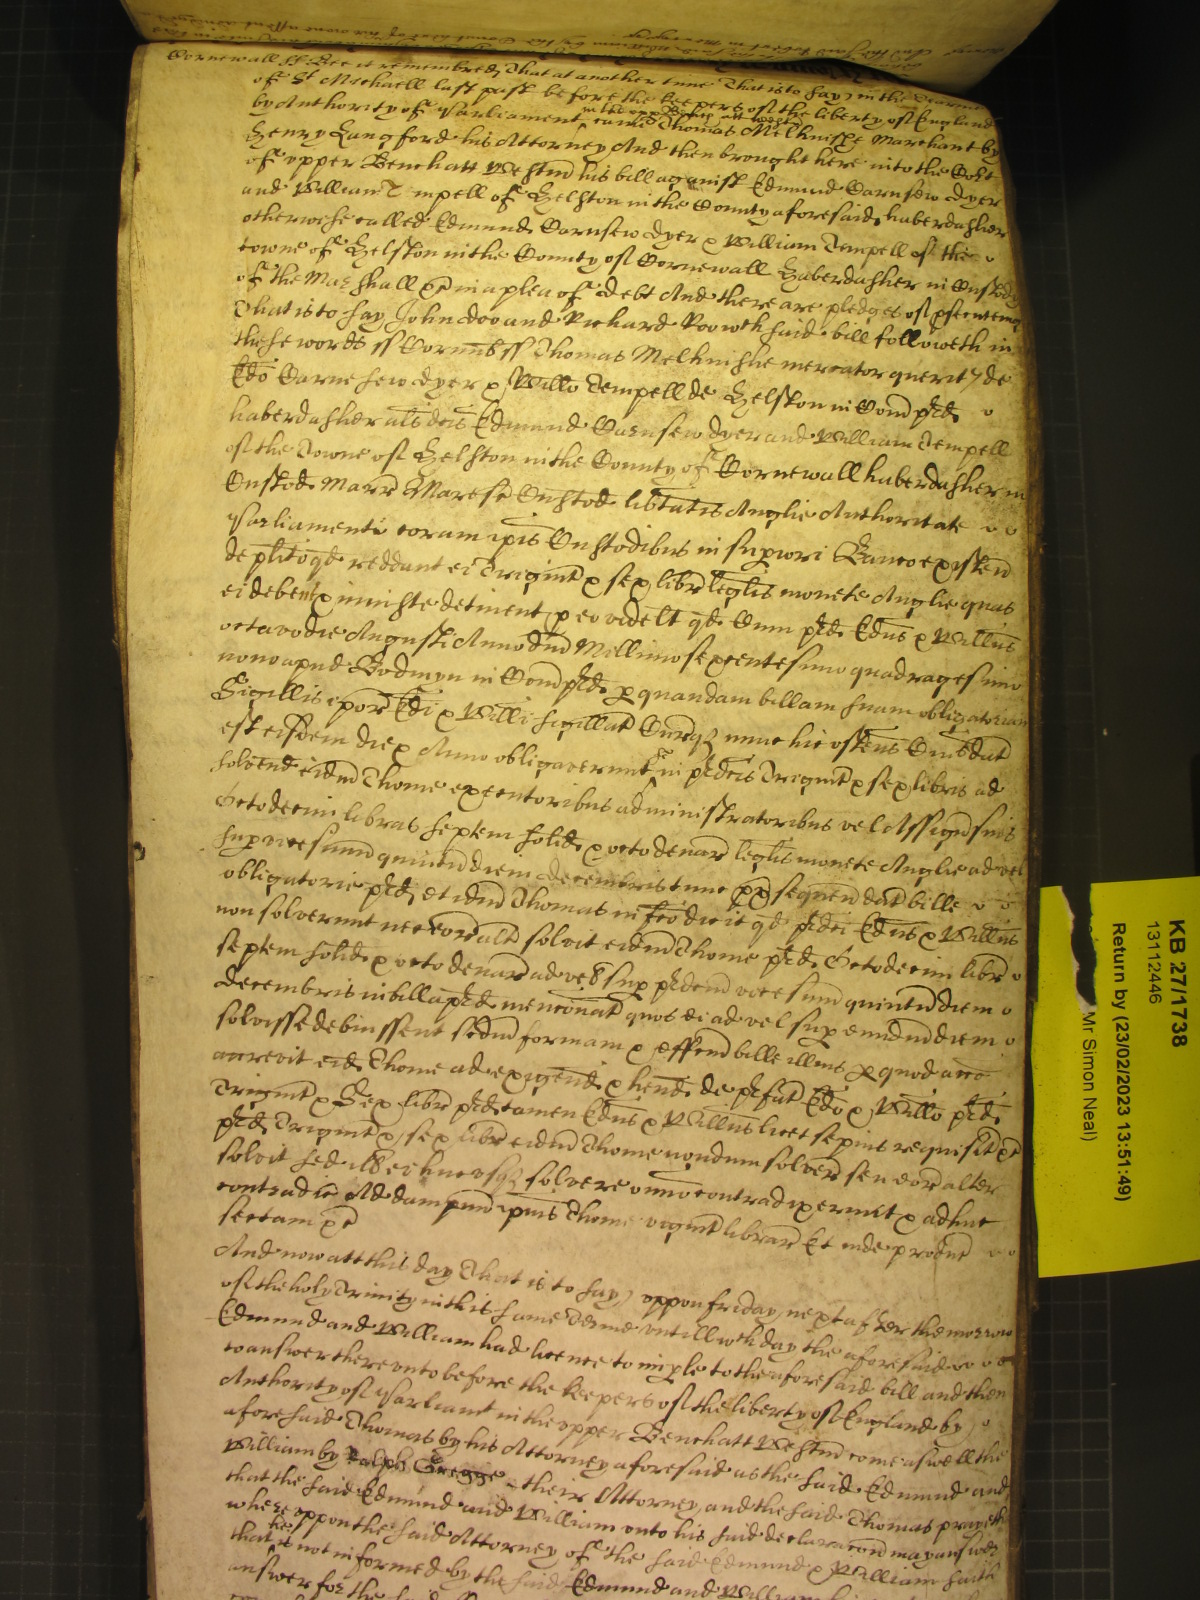 Cornewall ss Bee it remembred That at another time That is to say in the Tearme
of St Michaell last past before the keepers of the liberty of England
by Authority of Parliament in the upper Bench att Westmr came Thomas Melhuishe Marchant by
Henry Langford his Attorney And then brought here into the Cort
of upper Bench att Westm his bill against Edmund Carnsew dyer
and William Tempell of Helston in the County aforesaid haberdasher
otherwise called Edmund Carnsew dyer & William Tempell of the
towne of Helston in the County of Cornewall Haberdasher in Custody
of the Marshall &c in a plea of debt And there are pledges of psecuteing
That is to say John doo and Richard Roo wch said bill followeth in
these words ss Cornub ss Thomas Melhuishe mercator querit de
Edo Carnesew dyer & Willo Tempell de Helston in Com pred
haberdasher als dcis Edmund Carnsew dyer and William Tempell
of the Towne of Helston in the County of Cornewall haberdasher in
Custod Marr Maresc Custod libtatis Anglie Authoritate
Parliamenti coram ipis Custodibus in supiori Banco existen
de plito qd reddant ei Trigint & sex libr leglis monete Anglie quas
ei debent & iniuste detinent p eo videlt qd Cum pred Edus & Willus
octavo die Augusti Anno dm Millimo sexcentesimo quadragesimo
nono apud Bodmyn in Com pred p quandam billam suam obligatoriam
Sigillis ipor Edi & Willi sigillat Curq nunc hic ostens Cuius dat
est eisdem die & Anno obligaverunt se in predcis Trigint & sex libris ad
solvend eidm Thome executoribus administratoribus vel Assign suis
Octodecim libras septem solid & octo denar leglis monete Anglie ad vel
sup vicesimum quintu diem decembris tunc px sequen dat bille
obligatorie pred et idm Thomas in fco dicit qd predci Edus & Willus
non solverunt nec eor alt solvit eidm Thome pred Octodecim libr
septem solid & octo denar ad vel sup predcm vicesimum quintu diem
decembris in billa pred menconat quos ei ad vel sup eundm diem
solvisse debuissent scdm formam & effcm bille illius p quod acco
accrevit eid Thome ad exigend & hend de prefat Edo & Willo pred
Trigint & Sex libr pred tamen Edus & Willus licet sepius requisit &c
pred Trigint & sex libr eidm Thome nondum solver seu eor alter
solvit sed ill ei hucusq solvere omno contradixerunt & adhuc
contradic Ad dampnum ipius Thome vigint librar Et inde producit
sectam &c
And now att this day That is to say uppon friday next after the morrow
of the holy Trinity in this same Terme untill wch day the aforesaid
Edmund and William had licence to imple to the aforesaid bill and then
to answer thereunto before the keepers of the liberty of England by
Authority of Parliamt in the upper Bench att Westm come aswell the
aforesaid Thomas by his Attorney aforesaid as the said Edmund and
William by Ralph Gregge their Attorney and the said Thomas prayeth
that the said Edmund and William unto his said declaracon may answer
whereuppon the said Attorney of the said Edmund & William saith
that he is not informed by the said Edmund and William
answer for the said
KB 27/1738
13112446
Return by (23/02/2023 13:51:49)
Mr Simon Neal)